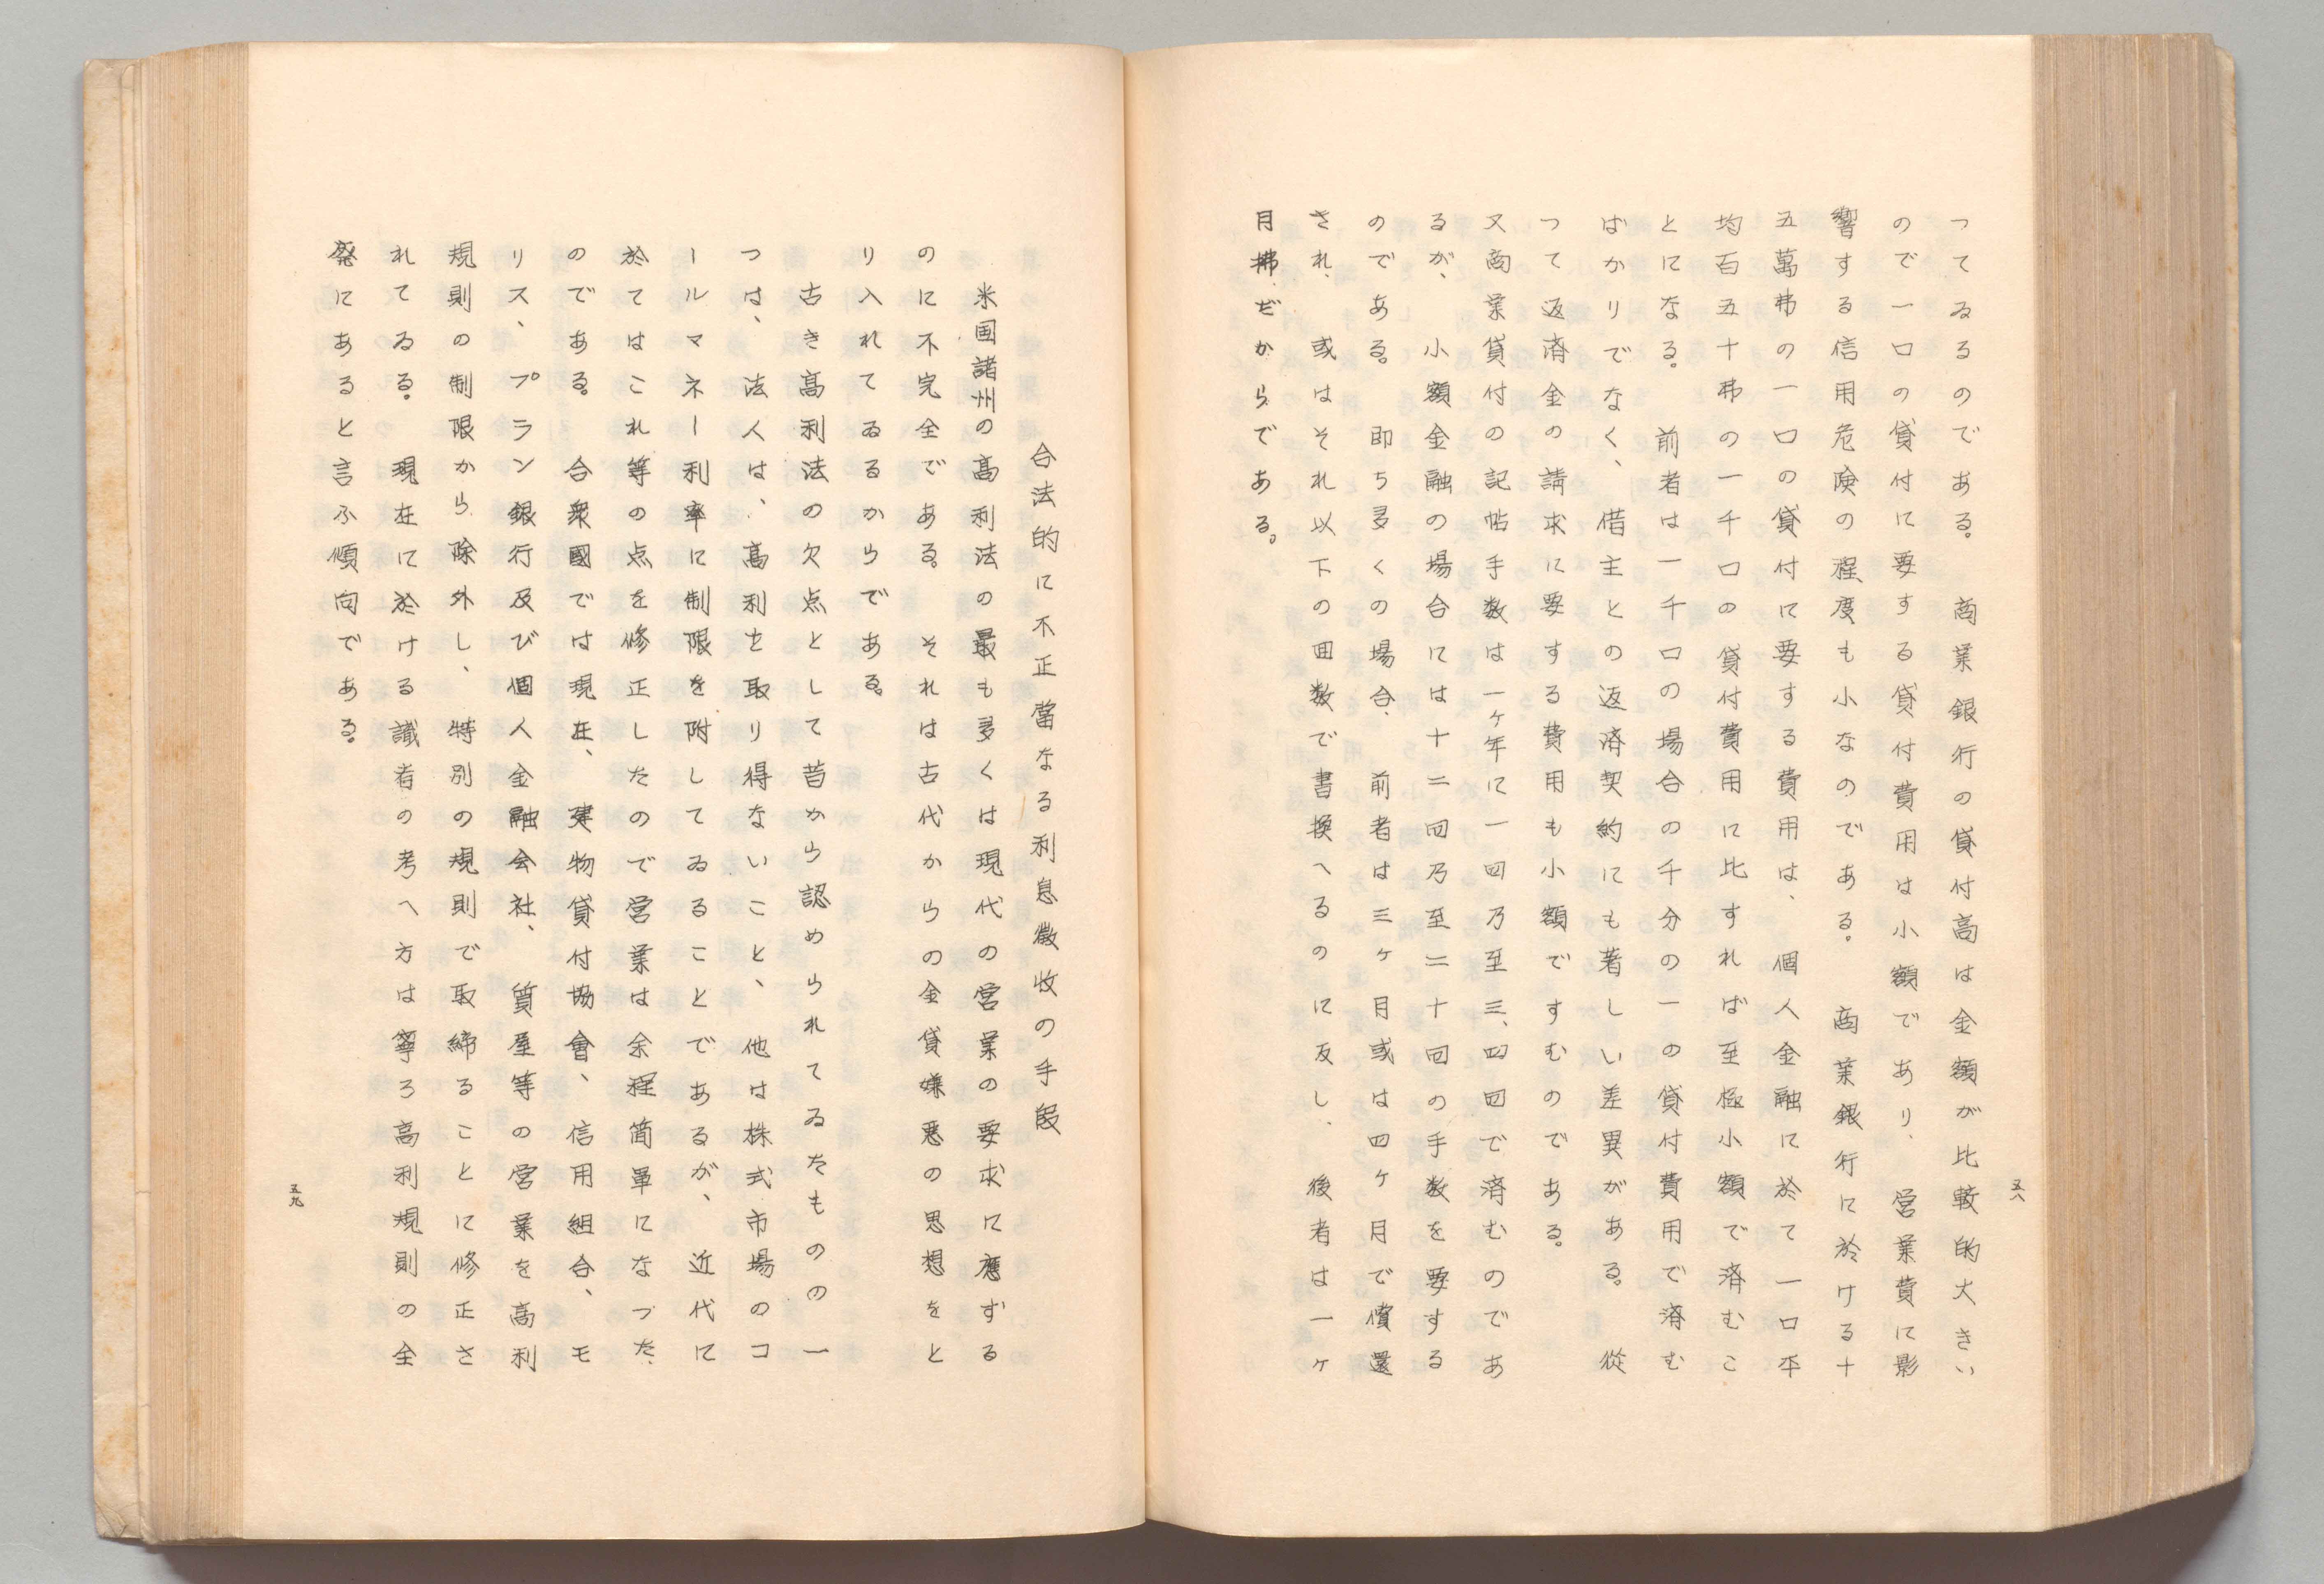 五八
つてゐるのである。 商業銀行の貸付高は金額が比較的大きい
ので一口の貸付に要する貸付費用は小額であり、 営業費に影
響する信用危険の程度も小なのである。 商業銀行に於ける十
五萬弗の一口の貸付に要する費用は、 個人金融に於て一口平
均百五十弗の一千口の貸付費用に比すれば至極小額で済むこ
とになる。 前者は一千口の場合の千分の一の貸付費用で済む
ばかりでなく、 借主との返済契約にも著しい差異がある。 從
つて返済金の請求に要する費用も小額ですむのである。
又商業貸付の記帖手数は一ヶ年に一回乃至三、四回で済むのであ
るが、 小額金融の場合には十二回乃至二十回の手数を要する
のである。 即ち多くの場合、 前者は三ヶ月或は四ヶ月で償還
され、 或はそれ以下の回数で書換へるのに反し、 後者は一ヶ
月拂だからである。
合法的に不正當なる利息徴收の手段
米国諸州の高利法の最も多くは現代の営業の要求に應ずる
のに不完全である。 それは古代からの金貸嫌悪の思想をと
り入れてゐるからである。
古き高利法の欠点として昔から認められてゐたものの一
つは、 法人は、高利を取り得ないこと、 他は株式市場のコ
ールマネー利率に制限を附してゐることであるが、 近代に
於てはこれ等の点を修正したので営業は余程简單になつた、
のである。 合衆國では現在、 建物貸付協會、信用組合、モ
リス、プラン銀行及び個人金融会社、 質屋等の営業を高利
規則の制限から除外し、 特別の規則で取締ることに修正さ
れてゐる。 現在に於ける識者の考へ方は寧ろ高利規則の全
廃にあると言ふ傾向である。
五九